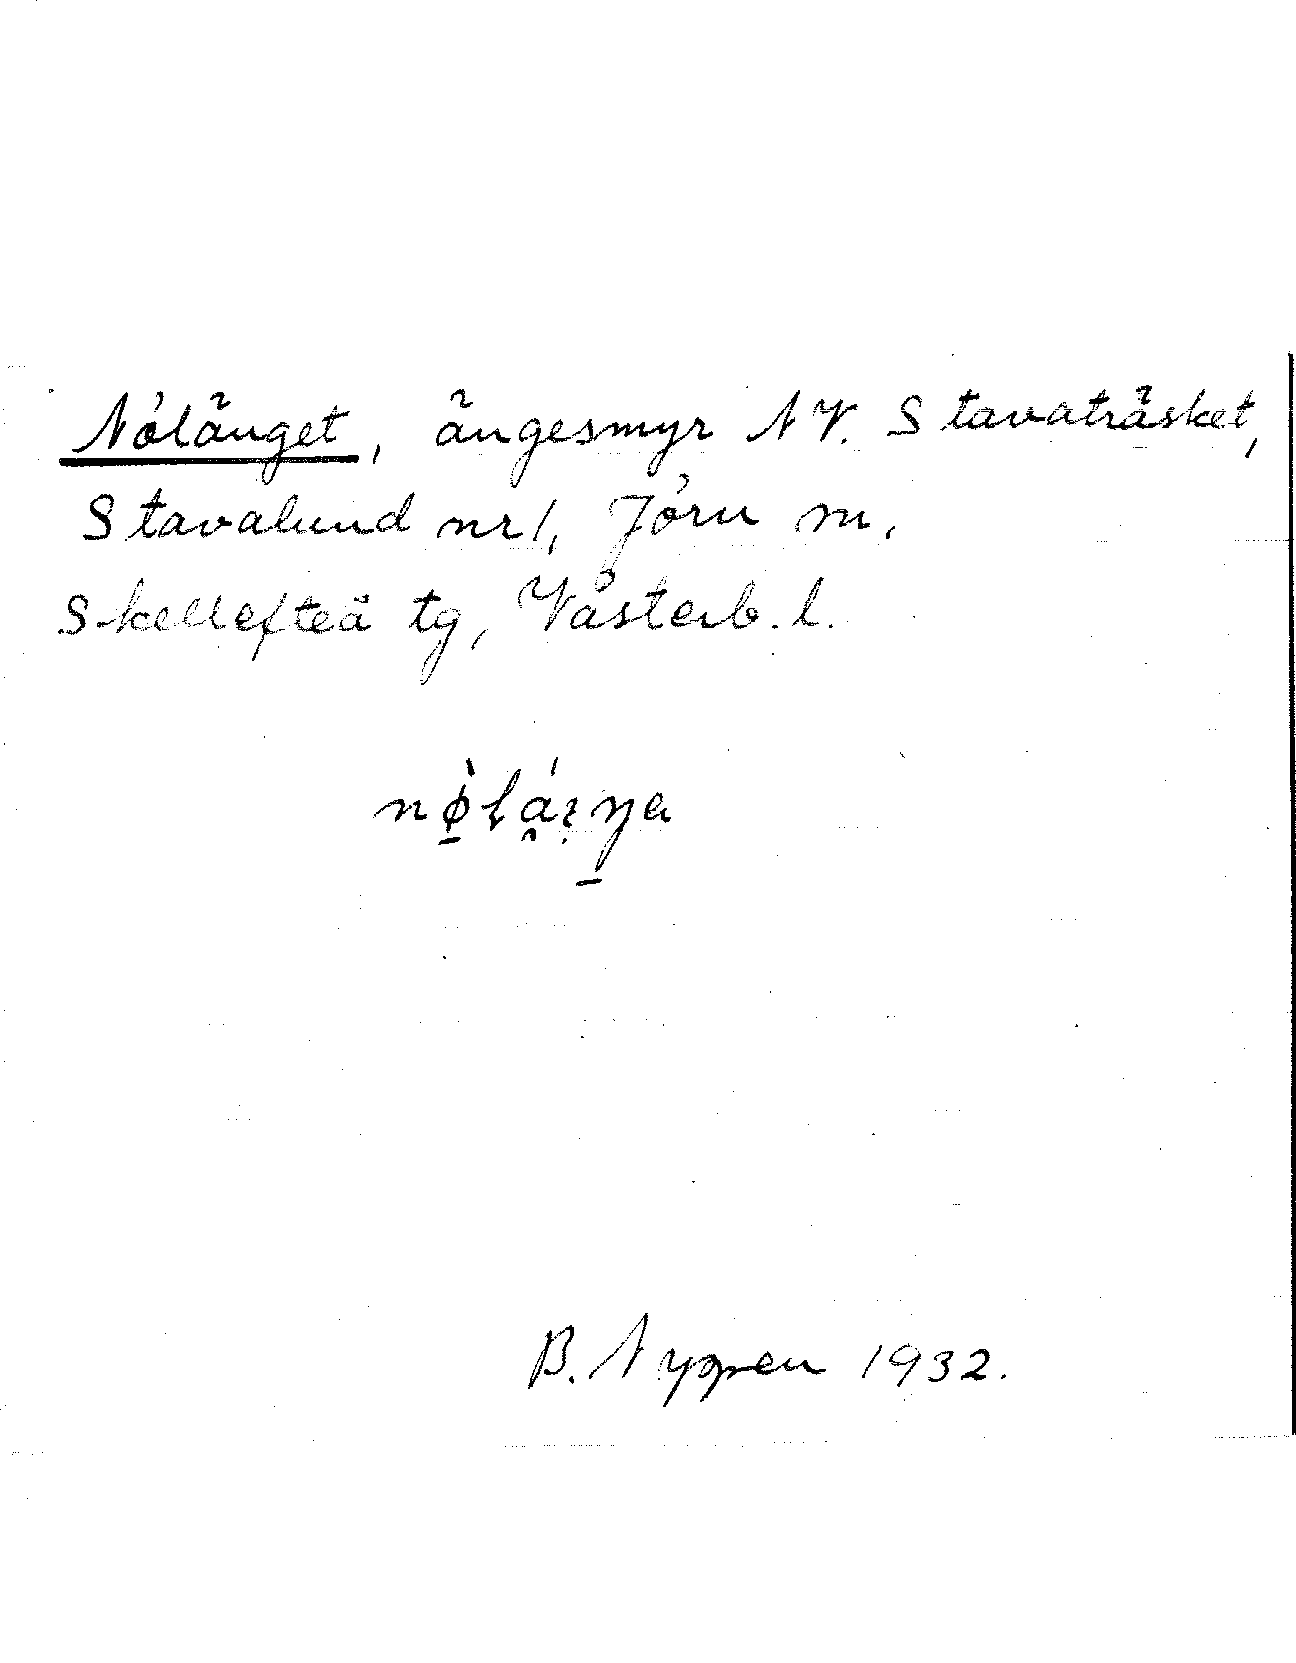 Nölänget, ängesmyr NV. Stavaträsket,
Stavalund nr 1, Jörn sn,
Skellefteå tg, Västerb. l.
B. Nyppen 1932.